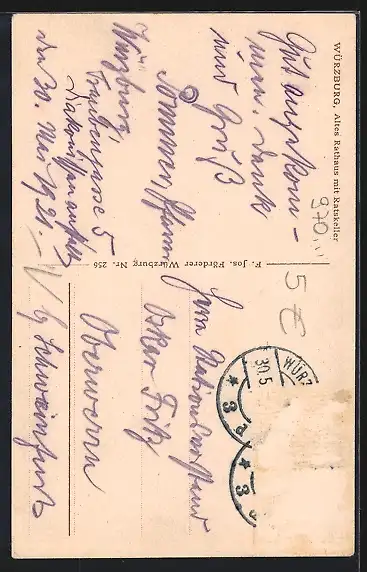 WÜRZBURG, Altes Rathaus mit Ratskeller
Gut angekom-
men. Dank
und Gruß
Würzburg
Traubengasse 5
den 30. Mai 1921.
F. Jos. Förderer Würzburg Nr. 256
Herrn
Oskar Fritz
Oberwerrn
b/ Schweinfurt
970,,,
5 €
WÜRZ
30.5
* 3 *
3